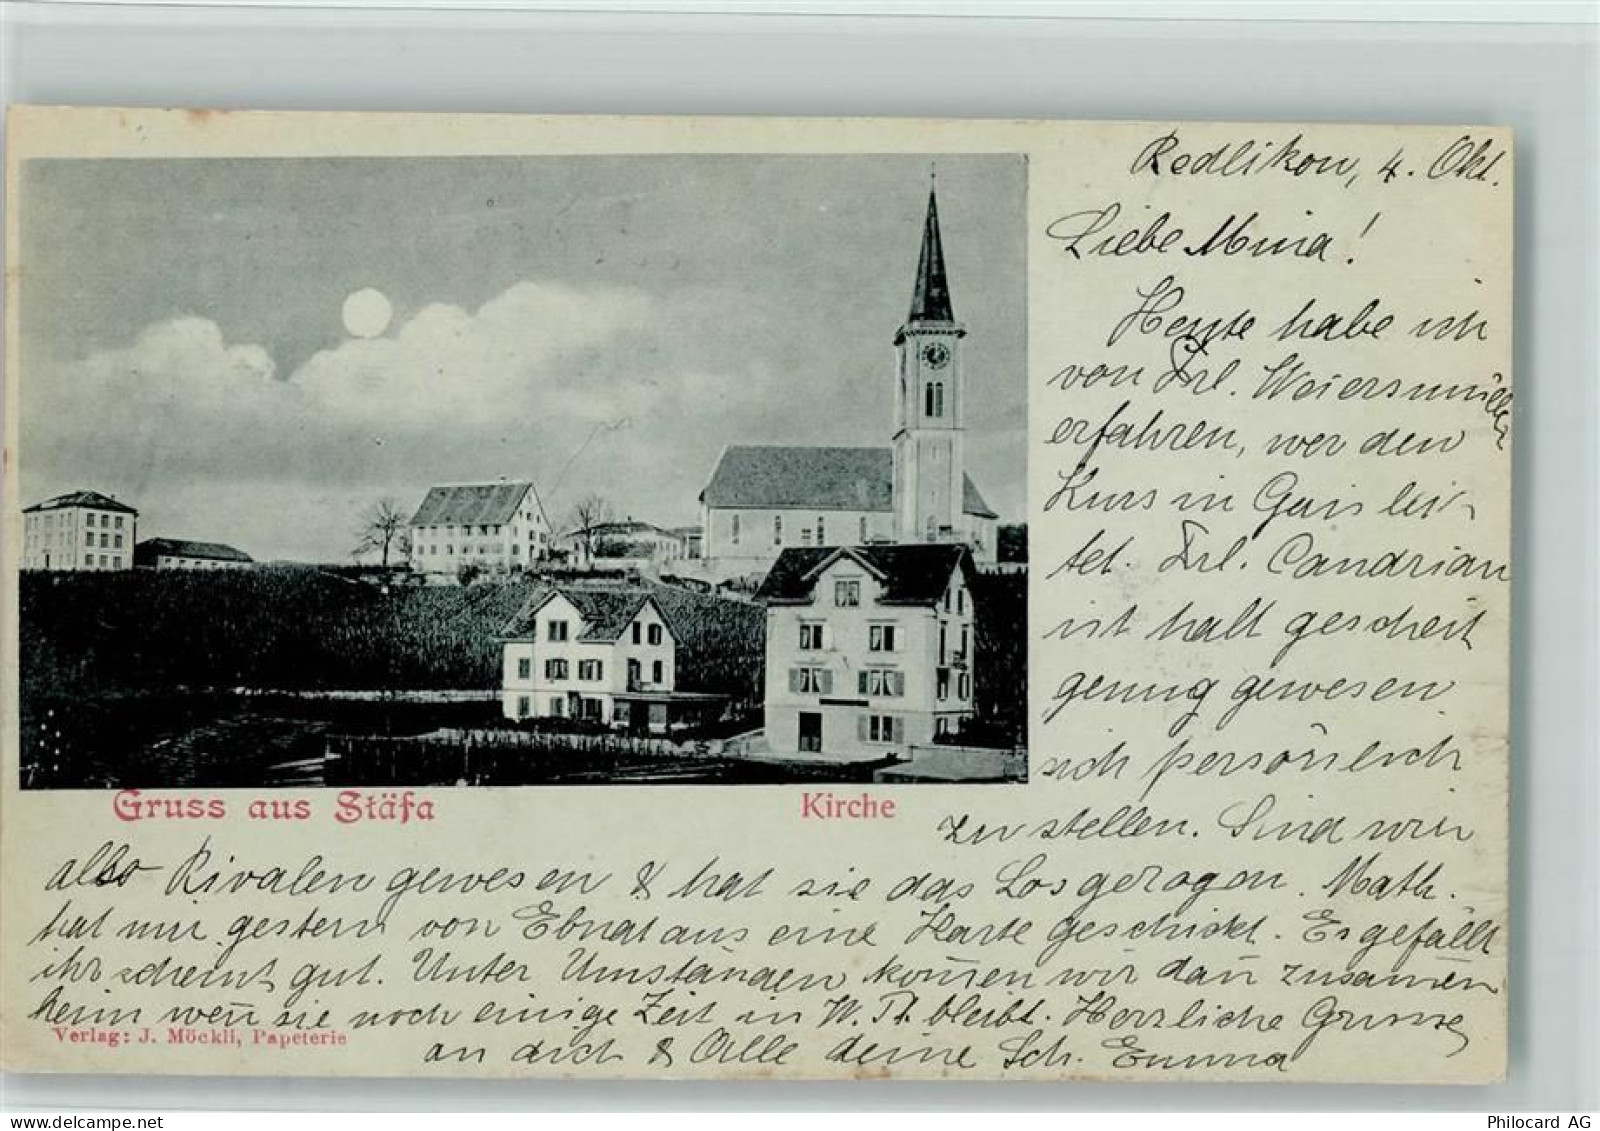 Redlikon, 4. Okt.
Liebe Mina!
Heute habe ich
von Frl. Weiersmüller
erfahren, wer den
Kurs in Gais lei-
tet. Frl. Candrian
ist halt gescheit
genug gewesen
sich persönlich
zu stellen. Sind wir
also Rivalen gewesen & hat sie das Los gezogen. Math.
hat mir gestern von Ebnat aus eine Karte geschickt. Es gefällt
ihr scheint gut. Unter Umständen kom̄en wir dan̄ zusam̄en
heim wen̄ sie noch einige Zeit in W. Th. bleibt. Herzliche Grüsse
an dich & Alle deine Sch. Emma
Gruss aus Stäfa
Kirche
Verlag: J. Möckli, Papeterie
Philocard AG